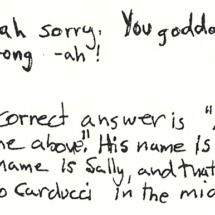 ah sorry. You goddo
ong -ah!
correct answer is "
e above". His name is
name is Sally, and that
o Carducci in the mid